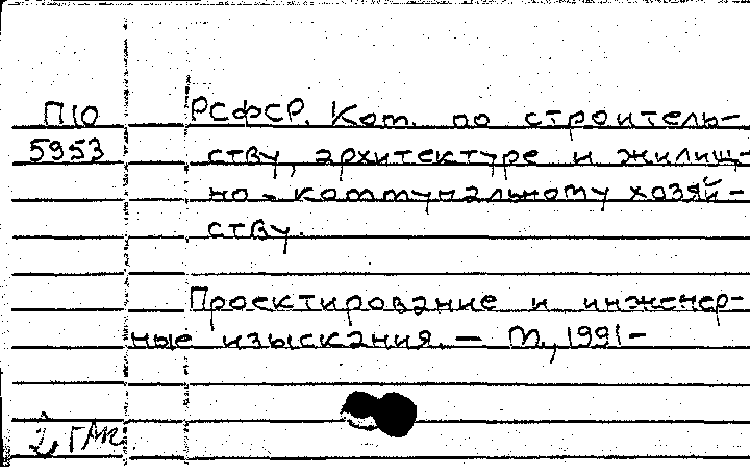 П10 РСФСР. Ком. по строитель-
5953 ству, архитектуре и жилищ-
но-коммунальному хозяй-
ству.
Проектирование и инженер-
ные изыскания. — М., 1991-